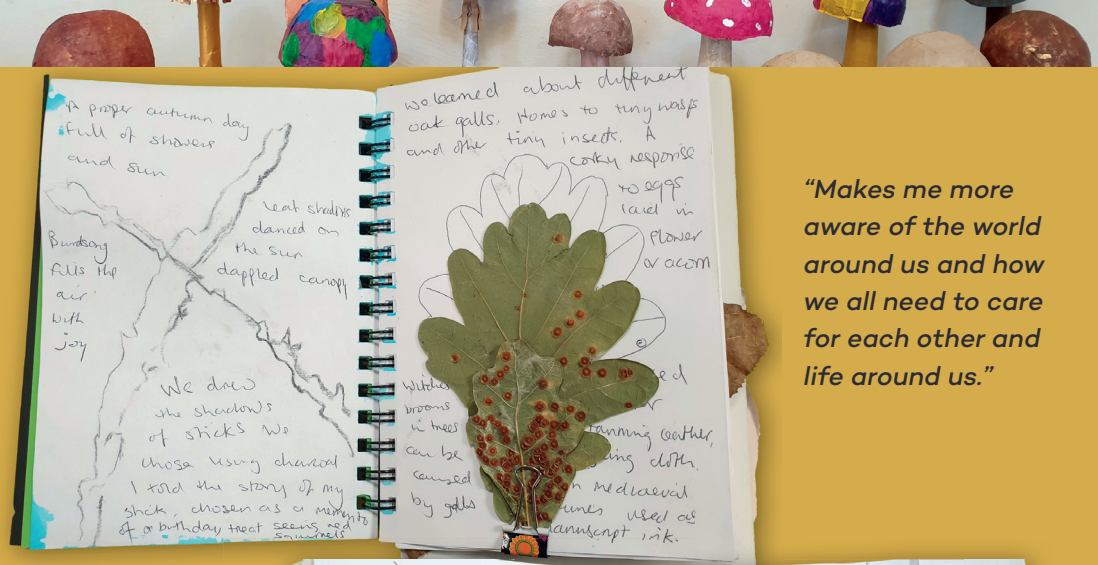 A proper autumn day
full of showers
and sun
leaf shadows
danced on
the sun
dappled canopy
Birdsong
fills the
air
with
joy
We drew
the shadows
of sticks we
chose using charcoal
I told the story of my
stick, chosen as a memento
of a birthday treat seeing red
squirrels
we learned about different
oak galls. Homes to tiny wasps
and other tiny insects. A
corky response
to eggs
laid in
flower
or acorn
Witches
brooms
in trees
can be
caused
by galls
tanning leather,
cloth.
mediaeval
used as
manuscript ink.
“Makes me more
aware of the world
around us and how
we all need to care
for each other and
life around us.”